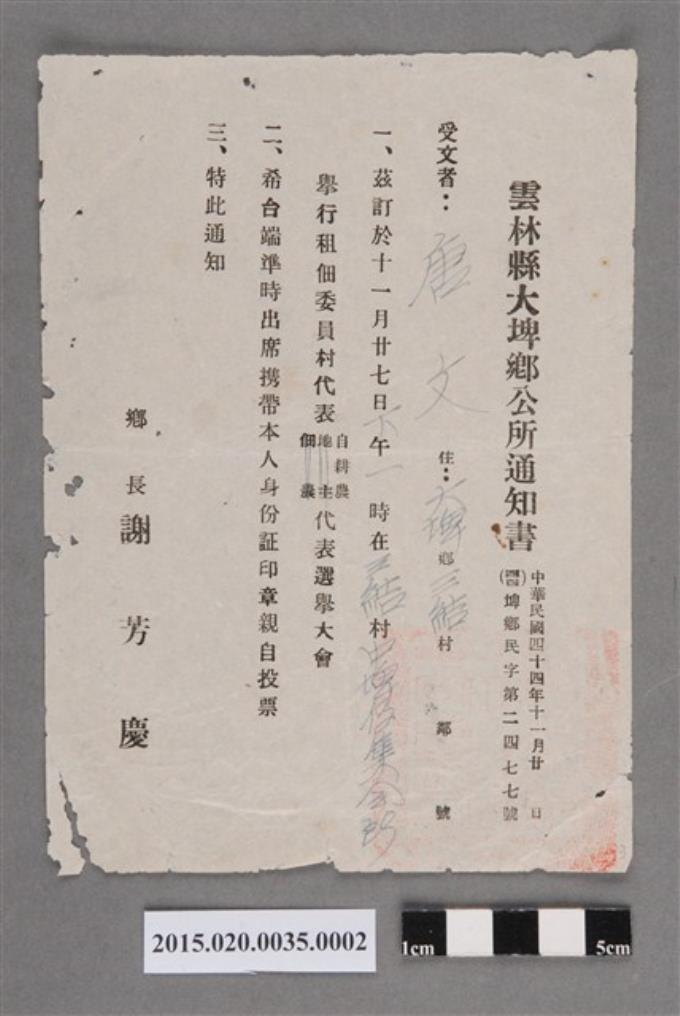 雲林縣大埤鄉公所通知書
中華民國四十四年十一月廿 日
埤鄉民字第二四七七號
受文者：唐文 住：大埤鄉三結村 鄰 號
一、茲訂於十一月廿七日下午一時在三結村
舉行租佃委員村代表 自耕農 地主 佃農 代表選舉大會
二、希台端準時出席携帶本人身份証印章親自投票
三、特此通知
鄉長 謝芳慶
2015.020.0035.0002
1cm 5cm